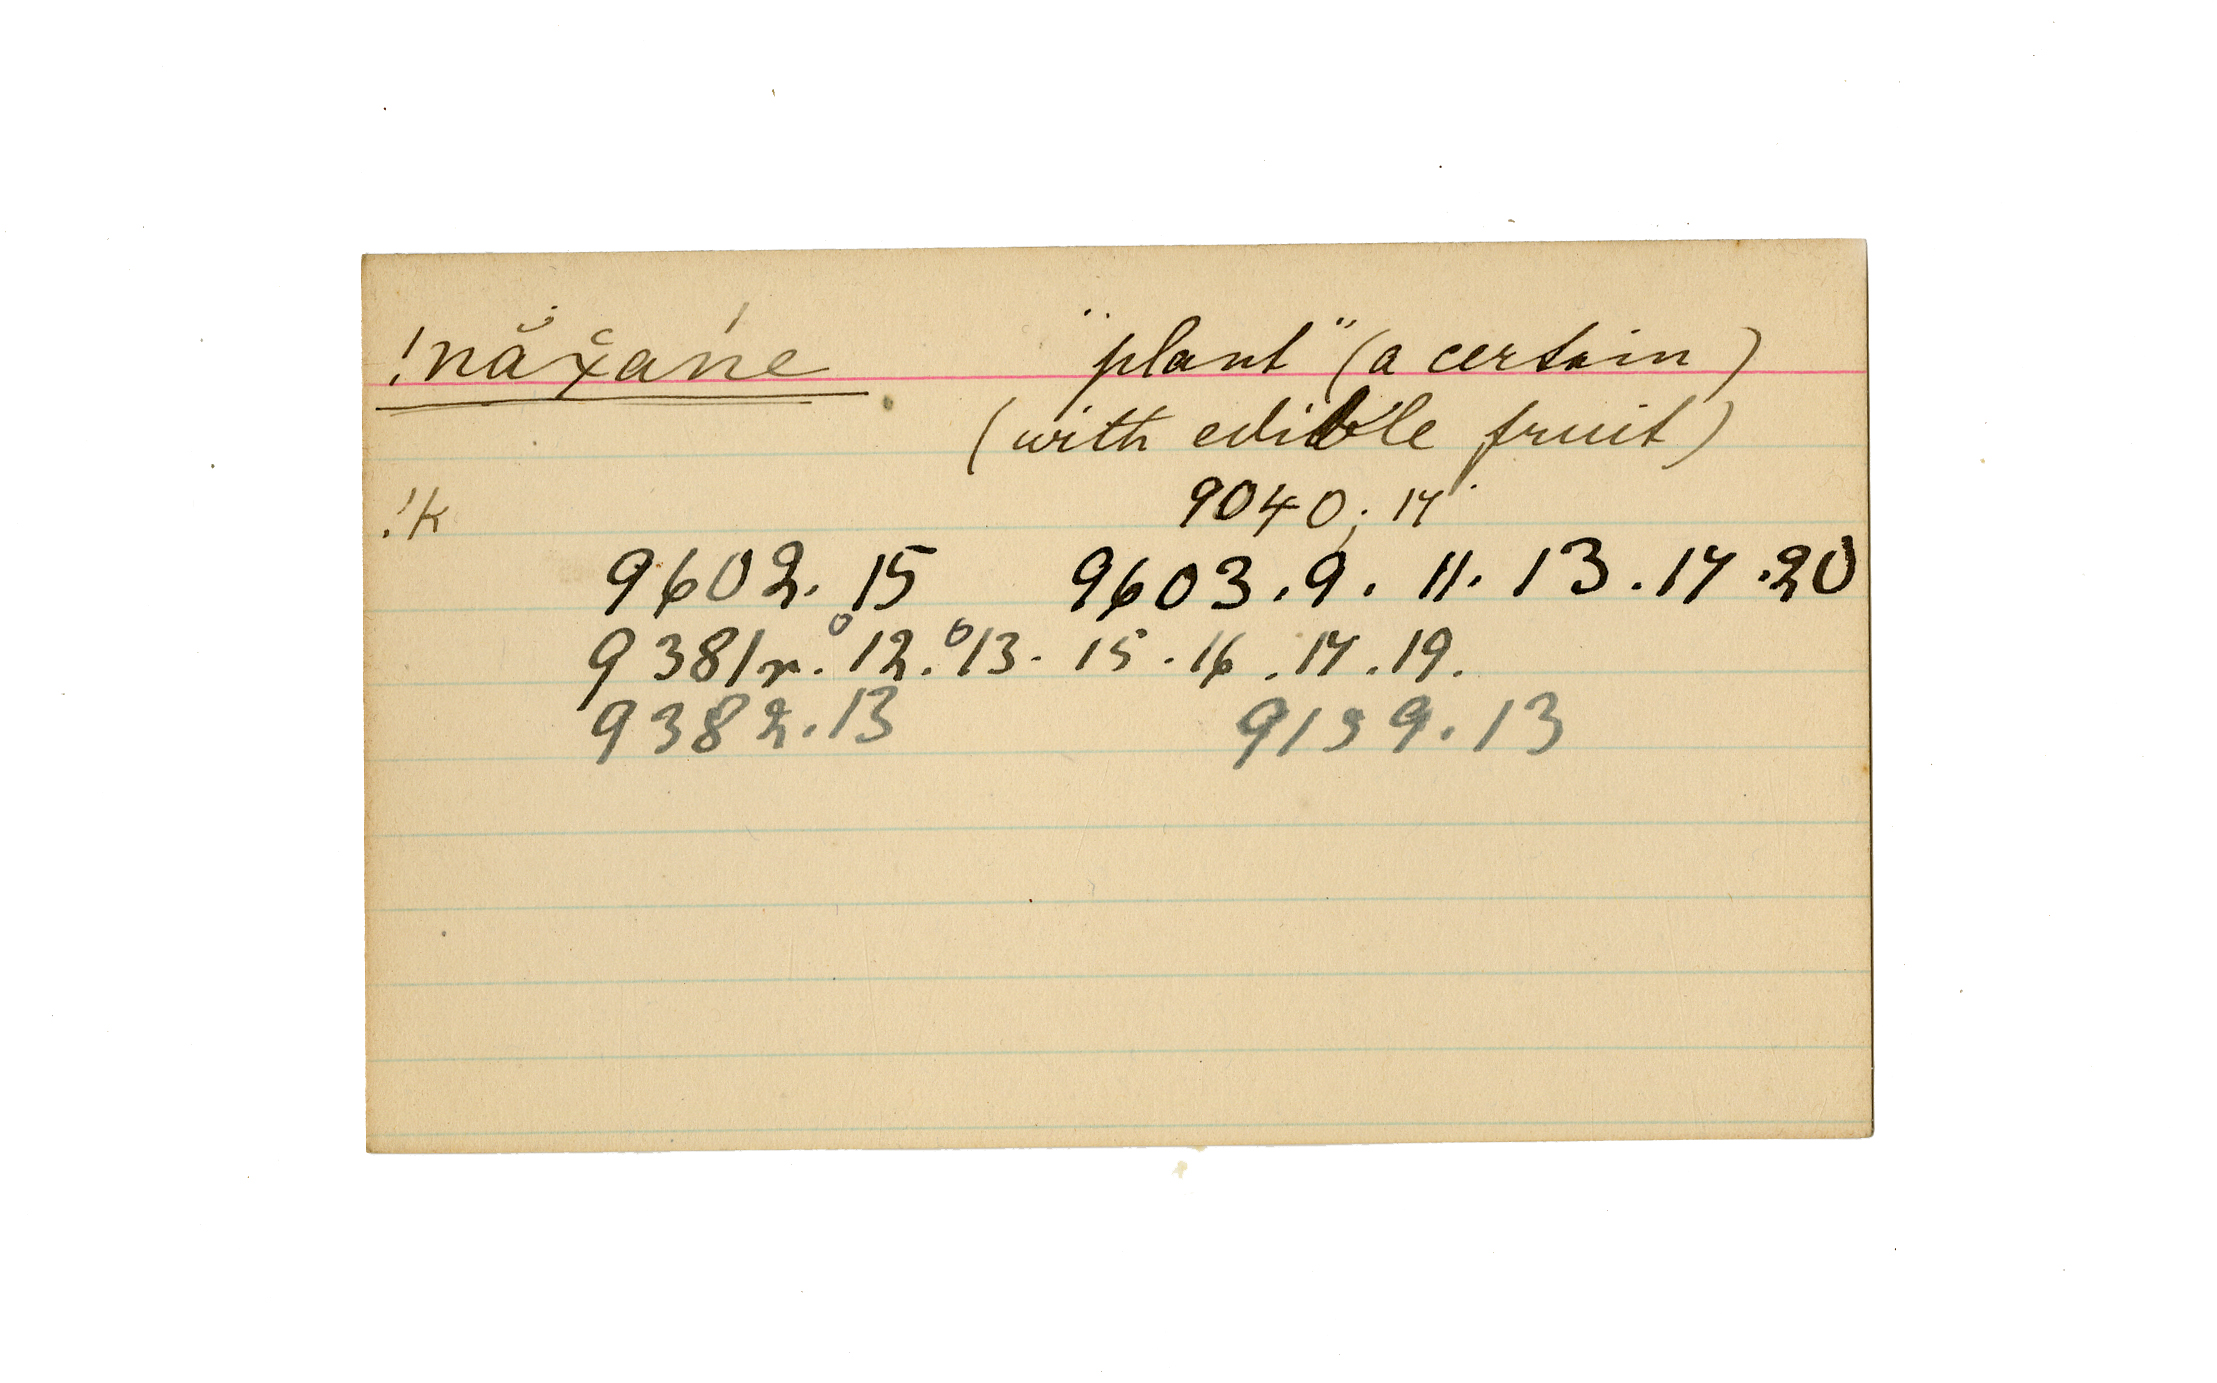 !nắx̆ańe "plant" (a certain)
(with edible fruit)
!k 9040; 17
9602. 15 9603. 9. 11. 13. 17. 20
9381r. °12. °13. 15. 16. 17. 19.
9382. 13 9159. 13